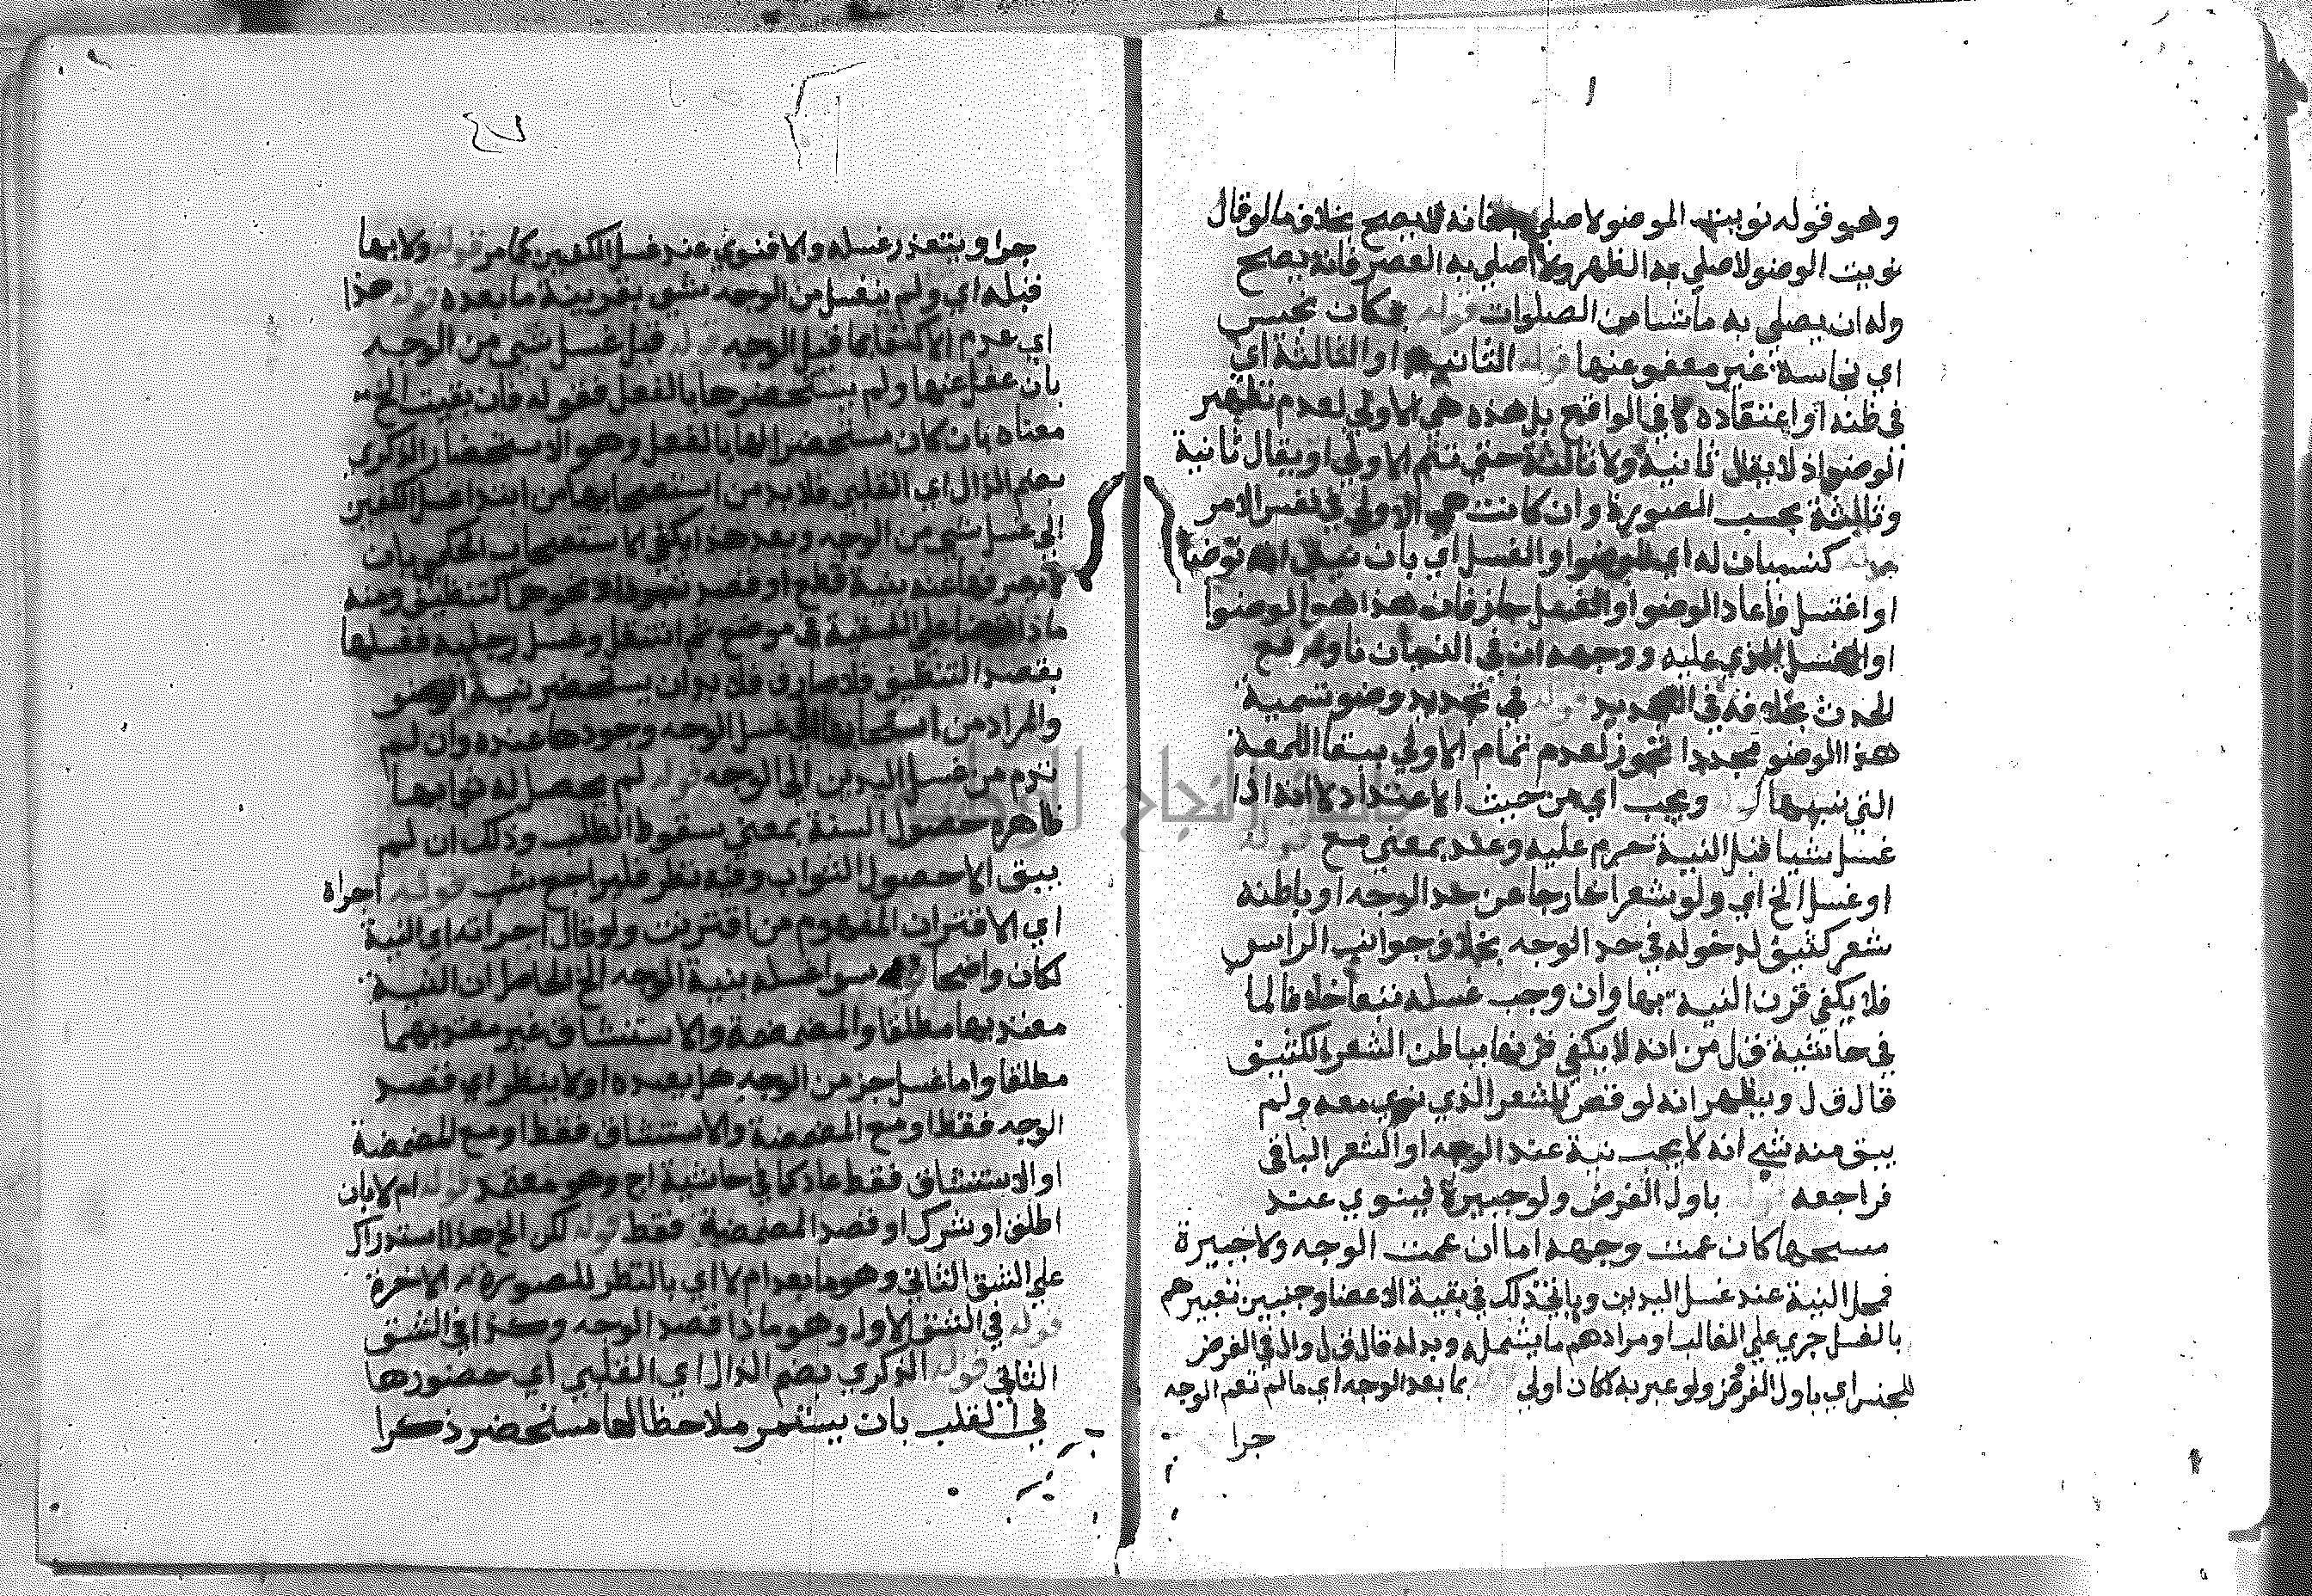 وهو قوله نويت الوضو لاصلي به فانه لا يصح بخلاف ما لو قال
نويت الوضو لاصلي به الظهر ولا اصلي به العصر فانه يصح
وله ان يصلي به ما شا من الصلوات قوله بمكان نجس
اي نجاسة غير معفو عنها قوله الثانية او الثالثة اي
في ظنه او اعتقاده لا في الواقع بل هذه هي الاولي لعدم تطهير
الوضو اذ لا يقال ثانية ولا ثالثة حتي تتم الاولي او يقال ثانية
وثالثة بحسب الصورة وان كانت هي الاولي في نفس الامر
قوله كنسيان له اي للوضوا والغسل اي بان نسي انه توضا
او اغتسل فاعاد الوضو او الغسل جاز فان هذا هو الوضوا
او الغسل الذي عليه ووجهه انه في النسيان ناو رفع
الحدث بخلافه في التجديد قوله في تجديد وضو تسمية
هذا الوضو مجددا تجوز لعدم تمام الاولي ببقا اللمعة
التي نسيها قوله ويجب اي من حيث الاعتداد لا انه اذا
غسل شيا قبل النية حرم عليه وعند بمعني مع قوله
او غسل الخ اي ولو شعرا خارجا عن حد الوجه او باطنه
شعر كثيف لدخوله في حد الوجه بخلاف جوانب الراس
فلا يكفي قرن النية بها وان وجب غسله تبعا خلافا لما
في حاشية ق ل من انه لا يكفي قرنها بباطن الشعر الكثيف
قال ق ل ويظهر انه لو قص الشعر الذي نوي معه ولم
يبق منه شي انه لا يجب نية عند الوجه او الشعر الباقي
فراجعه قوله باول الفرض ولو جبيرة فينوي عند
مسحها كان عمت وجهه اما ان عمت الوجه ولا جبيرة
فمحل النية عند غسل اليدين وياتي ذلك في بقية الاعضا وحنيين تعبيرهم
بالغسل جري علي الغالب او مرادهم ما يشمله وبدله قال ق ل وال في الفرض
للجنس اي باول الفرض ولو عبر به لكان اولي قوله بما بعد الوجه اي ما لم تعم الوجه
جرا
جرا ويتعذر غسله والا فنوي عند غسل الكفين كما مر قوله ولا بما
قبله اي ولم ينغسل من الوجه شي بقرينة ما بعده قوله هذا
اي عدم الاكتفا بما قبل الوجه قوله قبل غسل شي من الوجه
بان غفل عنها ولم يستحضرها بالفعل فقوله فان بقيت الخ
معناه بان كان مستحضرا لها بالفعل وهو الاستحضار الذكري
بضم الذال اي القلبي فلا بد من استصحابها من ابتدا غسل الكفين
الي غسل شي من الوجه وبعد هذا يكفي الاستصحاب الحكمي بان
لا يصرفها عنه بنية قطع او قصد نحو ها كتنظيف ومنه
ما علي الفسقية في موضع ثم انتقل وغسل رجليه فغسلها
بقصد التنظيف فلا صارف فلا بد ان يستحضر نية الوضو
والمراد من استصحابها الي غسل الوجه وجودها عنده وان لم
تدم من غسل اليدين الي الوجه قوله لم يحصل له ثوابها
ظاهره حصول السنة بمعني سقوط الطلب وذلك ان لم
يبق الا حصول الثواب وفيه نظر فليراجع شب قوله اجزاه
اي الاقتران المفهوم من اقترنت ولو قال اجزاته اي النية
لكان واضحا قوله سوا غسله بنية الوجه الخ الحاصل ان النية
معتد بها مطلقا والمضمضة والاستنشاق غير معتد بهما
مطلقا واما غسل جز من الوجه هل يعيده او لا ينظر اي قصد
الوجه فقط او مع المضمضة والاستنشاق فقط او مع المضمضة
او الاستنشاق فقط عاد كما في حاشية اج وهو معتمد قوله ام لا بان
اطلق او شرك او قصد المضمضة فقط قوله لكن الخ هذا استدراك
علي الشق الثاني وهو ما بعد ام لا اي بالنظر للصورة الاخرة
قوله في الشق الاول وهو ما اذا قصد الوجه وكذا في الشق
الثاني قوله الذكري بضم الذال اي القلبي اي حضورها
في القلب بان يستمر ملاحظا لها مستحضر ذكرا